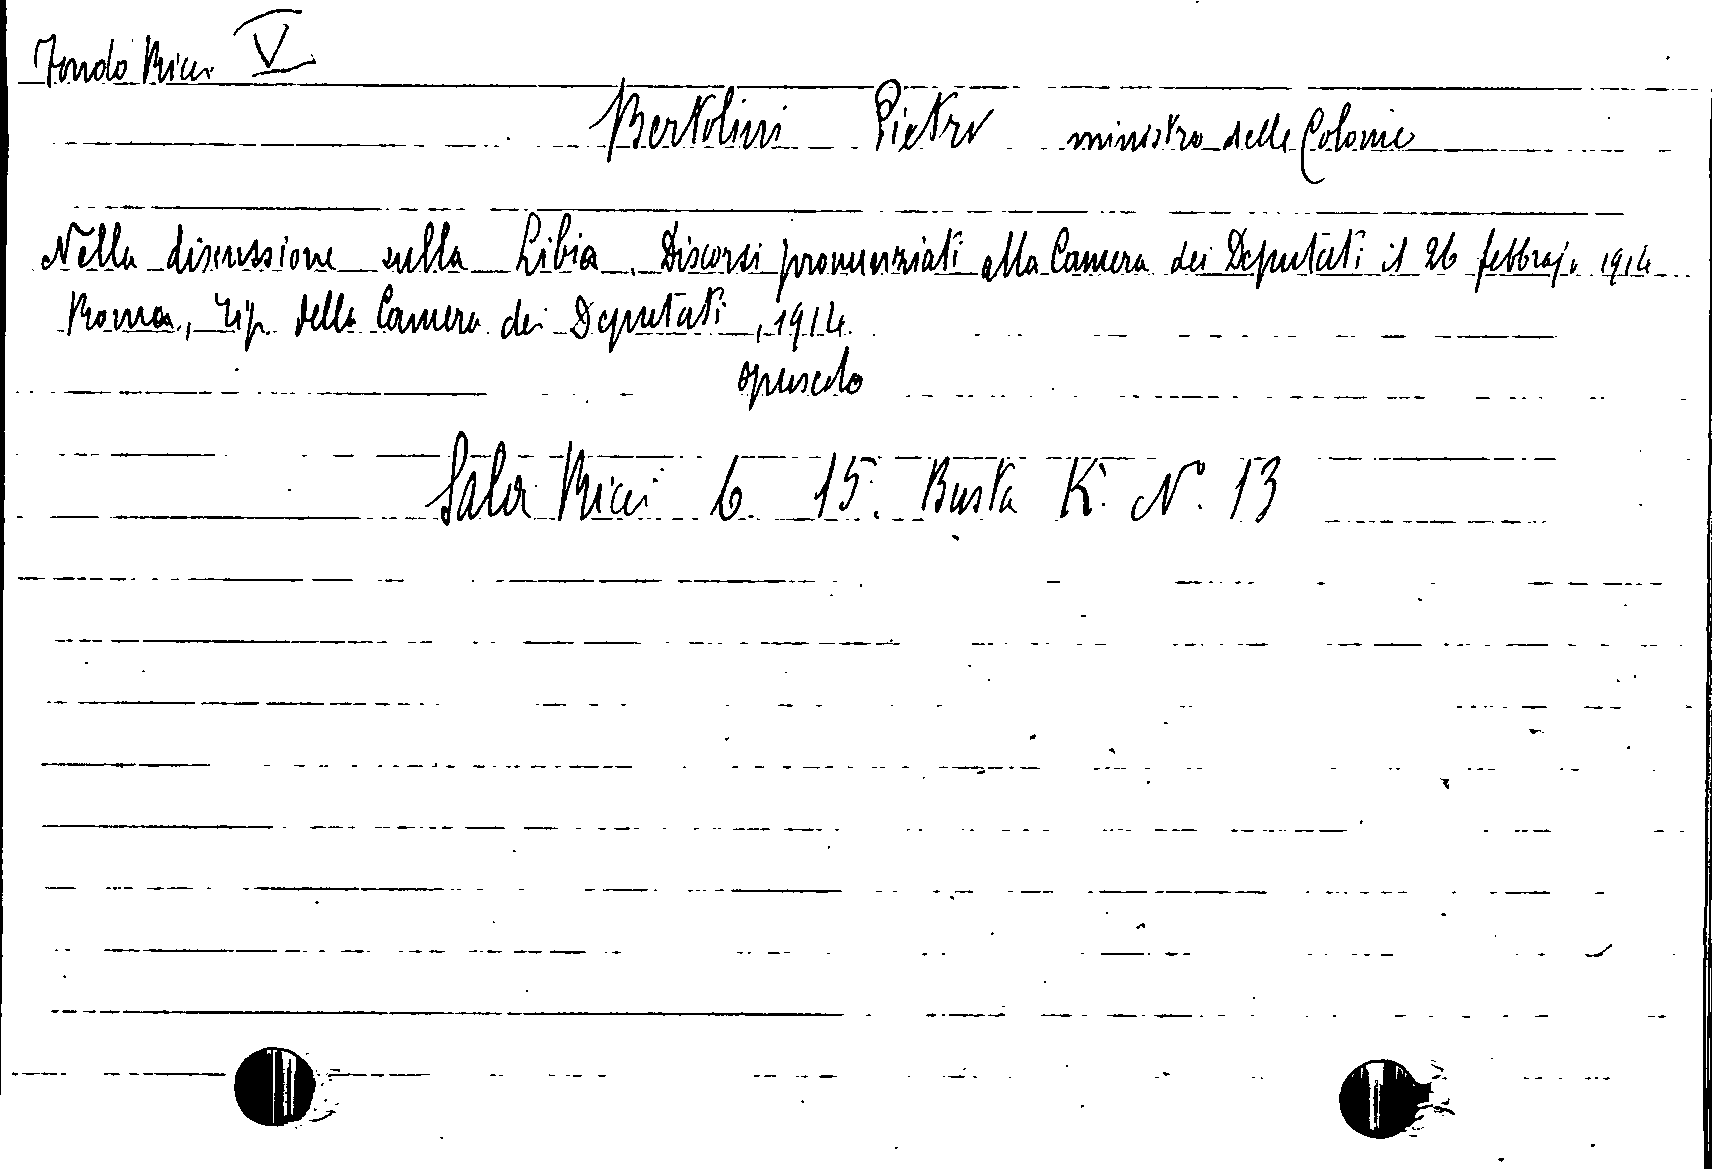 Fondo Ricci V
Bertolini Pietro ministro delle Colonie
Nella discussione sulla Libia. Discorsi pronunziati alla Camera dei Deputati il 26 febbraio 1914
Roma, Tip. della Camera dei Deputati, 1914
opuscolo
Sala Ricci 6 15. Busta K. N°. 13